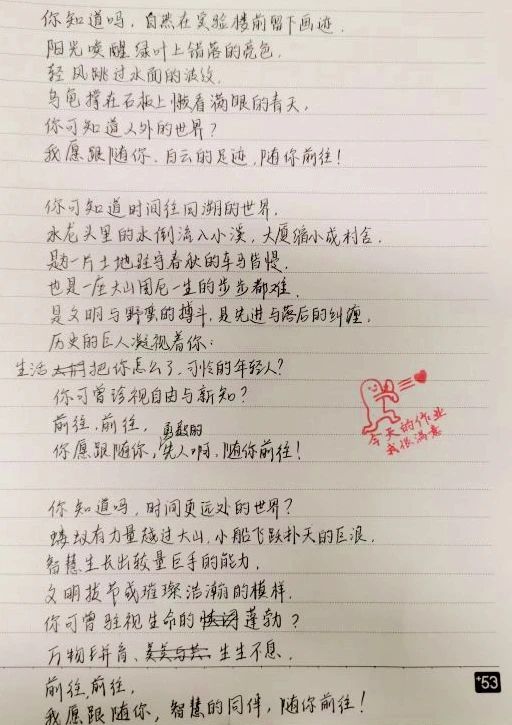 你知道吗，自然在实验楼前留下画迹.
阳光唤醒绿叶上错落的亮色.
轻风跳过水面的波纹.
乌龟撑在石板上懒看满眼的青天,
你可知道人外的世界？
我愿跟随你、白云的足迹,随你前往！
你可知道时间往回溯的世界.
水龙头里的水倒流入小溪，大厦缩小成村舍.
是为一片土地驻守春秋的车马皆慢.
也是一座大山围厄一生的步步都难.
是文明与野蛮的搏斗.是先进与落后的纠缠.
历史的巨人凝视着你:
生活 把你怎么了,可怜的年轻人？
你可曾珍视自由与新知？
前往,前往,
你愿跟随你,勇敢的先人啊,随你前往！
今天的作业
我很满意
你知道吗，时间更远处的世界？
蚂蚁有力量越过大山.小船飞跃扑天的巨浪.
智慧生长出较量巨手的能力.
文明拔节成璀璨浩瀚的模样.
你可曾驻视生命的蓬勃？
万物并育、生生不息.
前往,前往,
我愿跟随你，智慧的同伴，随你前往！
+53